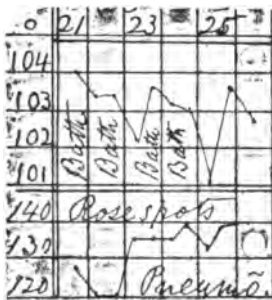 o 21 23 25
104
103
102
101
Bath Bath Bath Bath
140 Rose spots
130
120 Pneumõ.